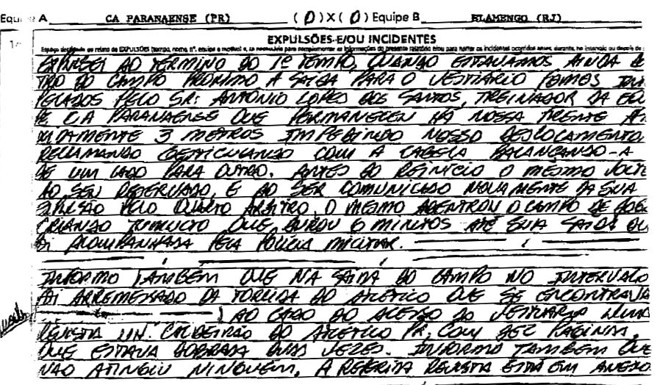 Equipe A CA PARANAENSE (PR) (0) X (0) Equipe B FLAMENGO (RJ)
EXPULSÕES E/OU INCIDENTES
EXPULSEI AO TÉRMINO DO 1º TEMPO, QUANDO ESTAVAMOS AINDA DE
TRO DO CAMPO PRÓXIMO A SAÍDA PARA O VESTIÁRIO FOMOS INTER
PELADOS PELO SR: ANTÔNIO LOPES DOS SANTOS, TREINADOR DA EQUI
PE C.A PARANAENSE QUE PERMANECEU HÁ NOSSA FRENTE A
MADAMENTE 3 METROS IMPEDINDO NOSSO DESLOCAMENTO
RECLAMANDO GESTICULANDO COM A CABEÇA BALANÇANDO-A
DE UM LADO PARA OUTRO. ANTES DO REINÍCIO O MESMO VOLTO
AO SEU RESERVADO, E AO SER COMUNICADO NOVAMENTE DA SUA
EXPULSÃO PELO QUARTO ÁRBITRO, O MESMO ADENTROU O CAMPO DE JOGO
CRIANDO TUMULTO QUE DUROU 6 MINUTOS ATÉ SUA SAÍDA QUE
FOI ACOMPANHADA PELA POLÍCIA MILITAR.
INFORMO TAMBÉM QUE NA SAÍDA DO CAMPO NO INTERVALO
FOI ARREMESSADO DA TORCIDA DO ATLÉTICO QUE SE ENCONTRAVA
AO LADO DO ACESSO DO VESTIÁRIO UMA
REVISTA CALDEIRÃO DO ATLÉTICO PR, COM PÁGINAS,
QUE ESTAVA DOBRADA DUAS VEZES. INFORMO TAMBÉM QUE
NÃO ATINGIU NINGUÉM, A REFERIDA REVISTA ESTÁ EM ANEXO